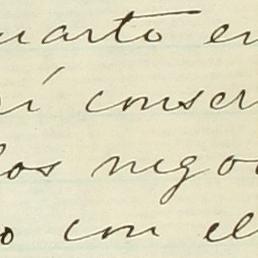 uarto en
í conser
los nego
o con el